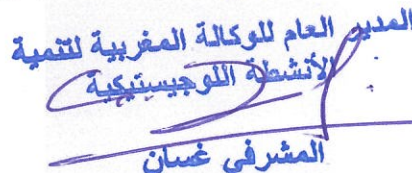 المدير العام للوكالة المغربية لتنمية
الأنشطة اللوجيستيكية
المشرفي غسان